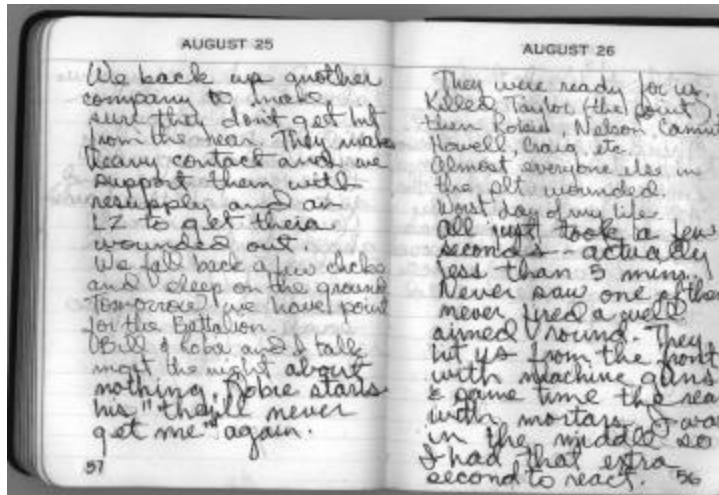 AUGUST 25
We back up another
company to make
sure they don't get hit
from the rear. They make
heavy contact and we
support them with
resupply and an
LZ to get their
wounded out.
We fall back a few clicks
and sleep on the ground
Tomorrow we have point
for the Battalion.
Bill & Robie and I talk
most the night about
nothing. Robie starts
his "they'll never
get me" again.
57
AUGUST 26
They were ready for us.
Killed Taylor (the point),
then Robie, Nelson,
Howell, Craig, etc.
Almost everyone else in
the plt wounded.
Worst day of my life
all just took a few
seconds - actually
less than 5 mins.
Never saw one of them
never fired a well
aimed round. They
hit us from the front
with machine guns
& same time the rea
with mortars. I was
in the middle so
I had that extra
second to react.
56